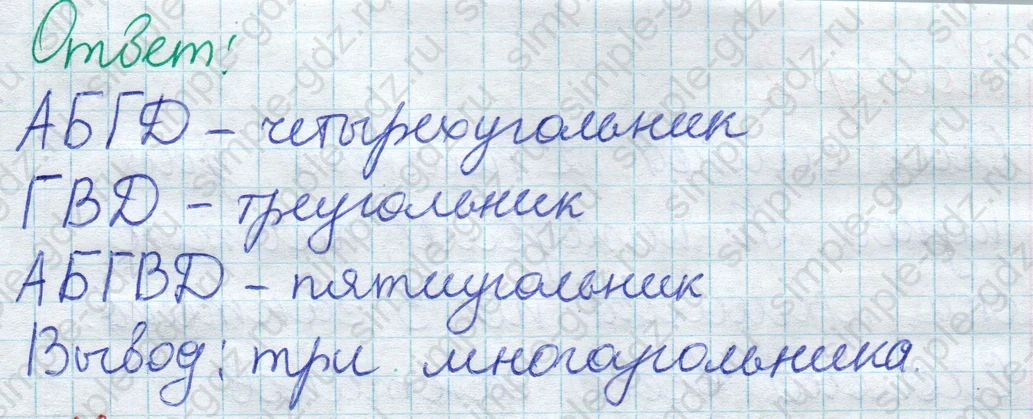 Ответ:
АБГД – четырехугольник
ГВД – треугольник
АБГВД – пятиугольник
Вывод: три многоугольника.